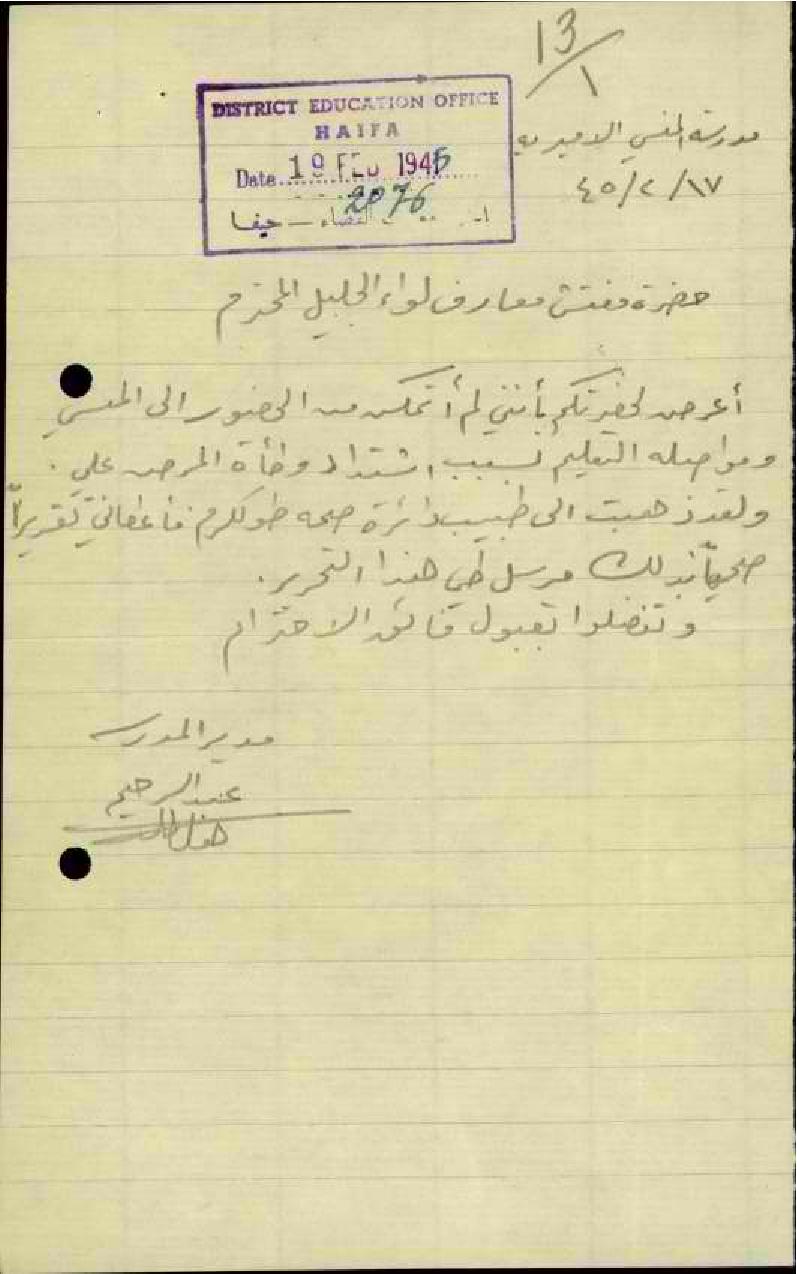 13/1
DISTRICT EDUCATION OFFICE
HAIFA
Date 19 FEB 1945
2076
حيفا
مدرسة المنسي الاميرية
١٧/٢/٤٥
حضرة مفتش معارف لواء الجليل المحترم
أعرض لحضرتكم بأنني لم أتمكن من الحضور الى المنسي
ومواصلة التعليم بسبب اشتداد وطأة المرض علي.
ولقد ذهبت الى طبيب دائرة صحة طولكرم فأعطاني تقريراً
صحياً بذلك مرسل طي هذا التحرير.
وتفضلوا بقبول فائق الاحترام
مدير المدرسة
عبد الرحيم